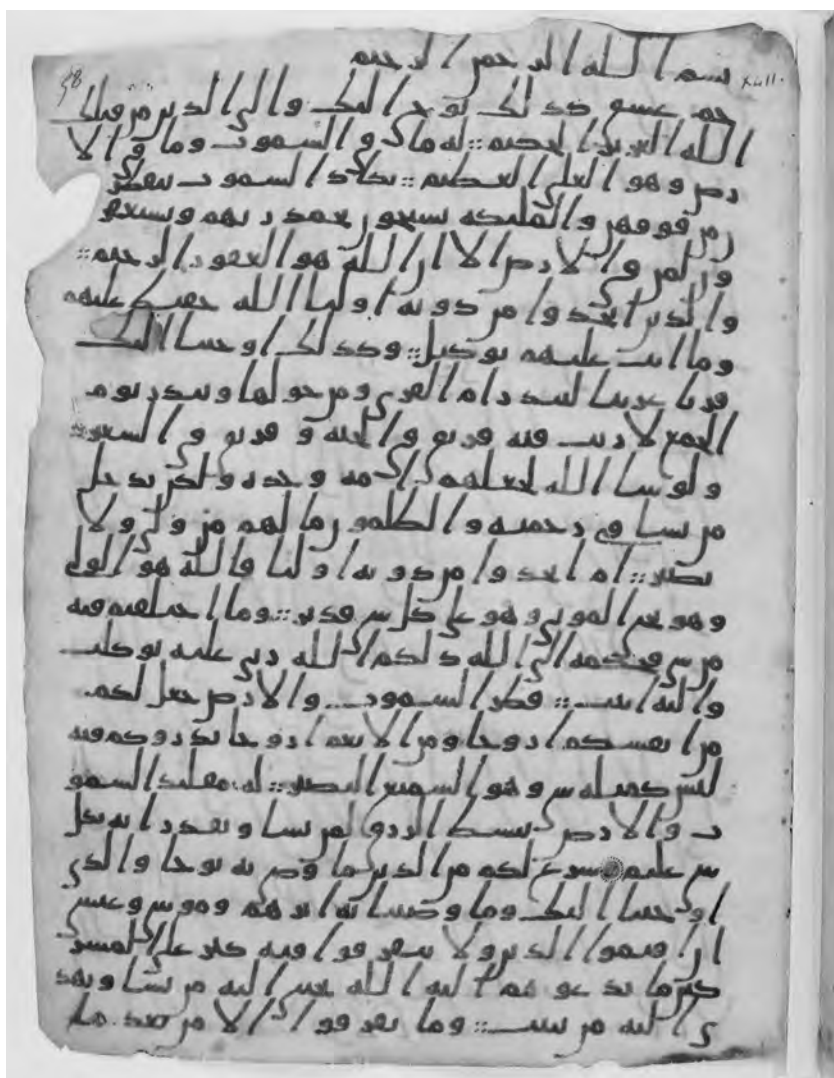 بسم الله الرحمن الرحيم
58 XLII.
حم عسق كذلك يوحي اليك والى الذين من قبلك
الله العزيز الحكيم :: له ما في السموت وما في الا
رض وهو العلي العظيم :: تكاد السموت يتفطر
ن من فوقهن والملئكه يسبحون بحمد ربهم ويستغفر
ون لمن في الارض الا ان الله هو الغفور الرحيم ::
والذين اتخذوا من دونه اوليا الله حفيظ عليهم
وما انت عليهم بوكيل :: وكذلك اوحينا اليك
قرنا عربيا لتنذر ام القرى ومن حولها وتنذر يوم
الجمع لا ريب فيه فريق في الجنه و فريق في السعير ::
ولو شا الله لجعلهم امه وحده ولكن يدخل
من يشا في رحمته والظلمون ما لهم من ولي ولا
نصير :: ام اتخذوا من دونه اوليا فالله هو الولي
وهو يحي الموتى وهو على كل شي قدير :: وما اختلفتم فيه
من شي فحكمه الى الله ذلكم الله ربي عليه توكلت
واليه انيب :: فطر السموت والارض جعل لكم
من انفسكم ازوجا ومن الانعم ازوجا يذروكم فيه
ليس كمثله شي وهو السميع البصير :: له مقليد السمو
ت والارض يبسط الرزق لمن يشا ويقدر انه بكل
شي عليم شرع لكم من الدين ما وصى به نوحا والذي
اوحينا اليك وما وصينا به ابرهيم وموسى وعيسى
ان اقيموا الدين ولا تتفرقوا فيه كبر على المشر
كين ما تدعوهم اليه الله يجتبي اليه من يشا ويهد
ي اليه من ينيب :: وما تفرقوا الا من بعد ما